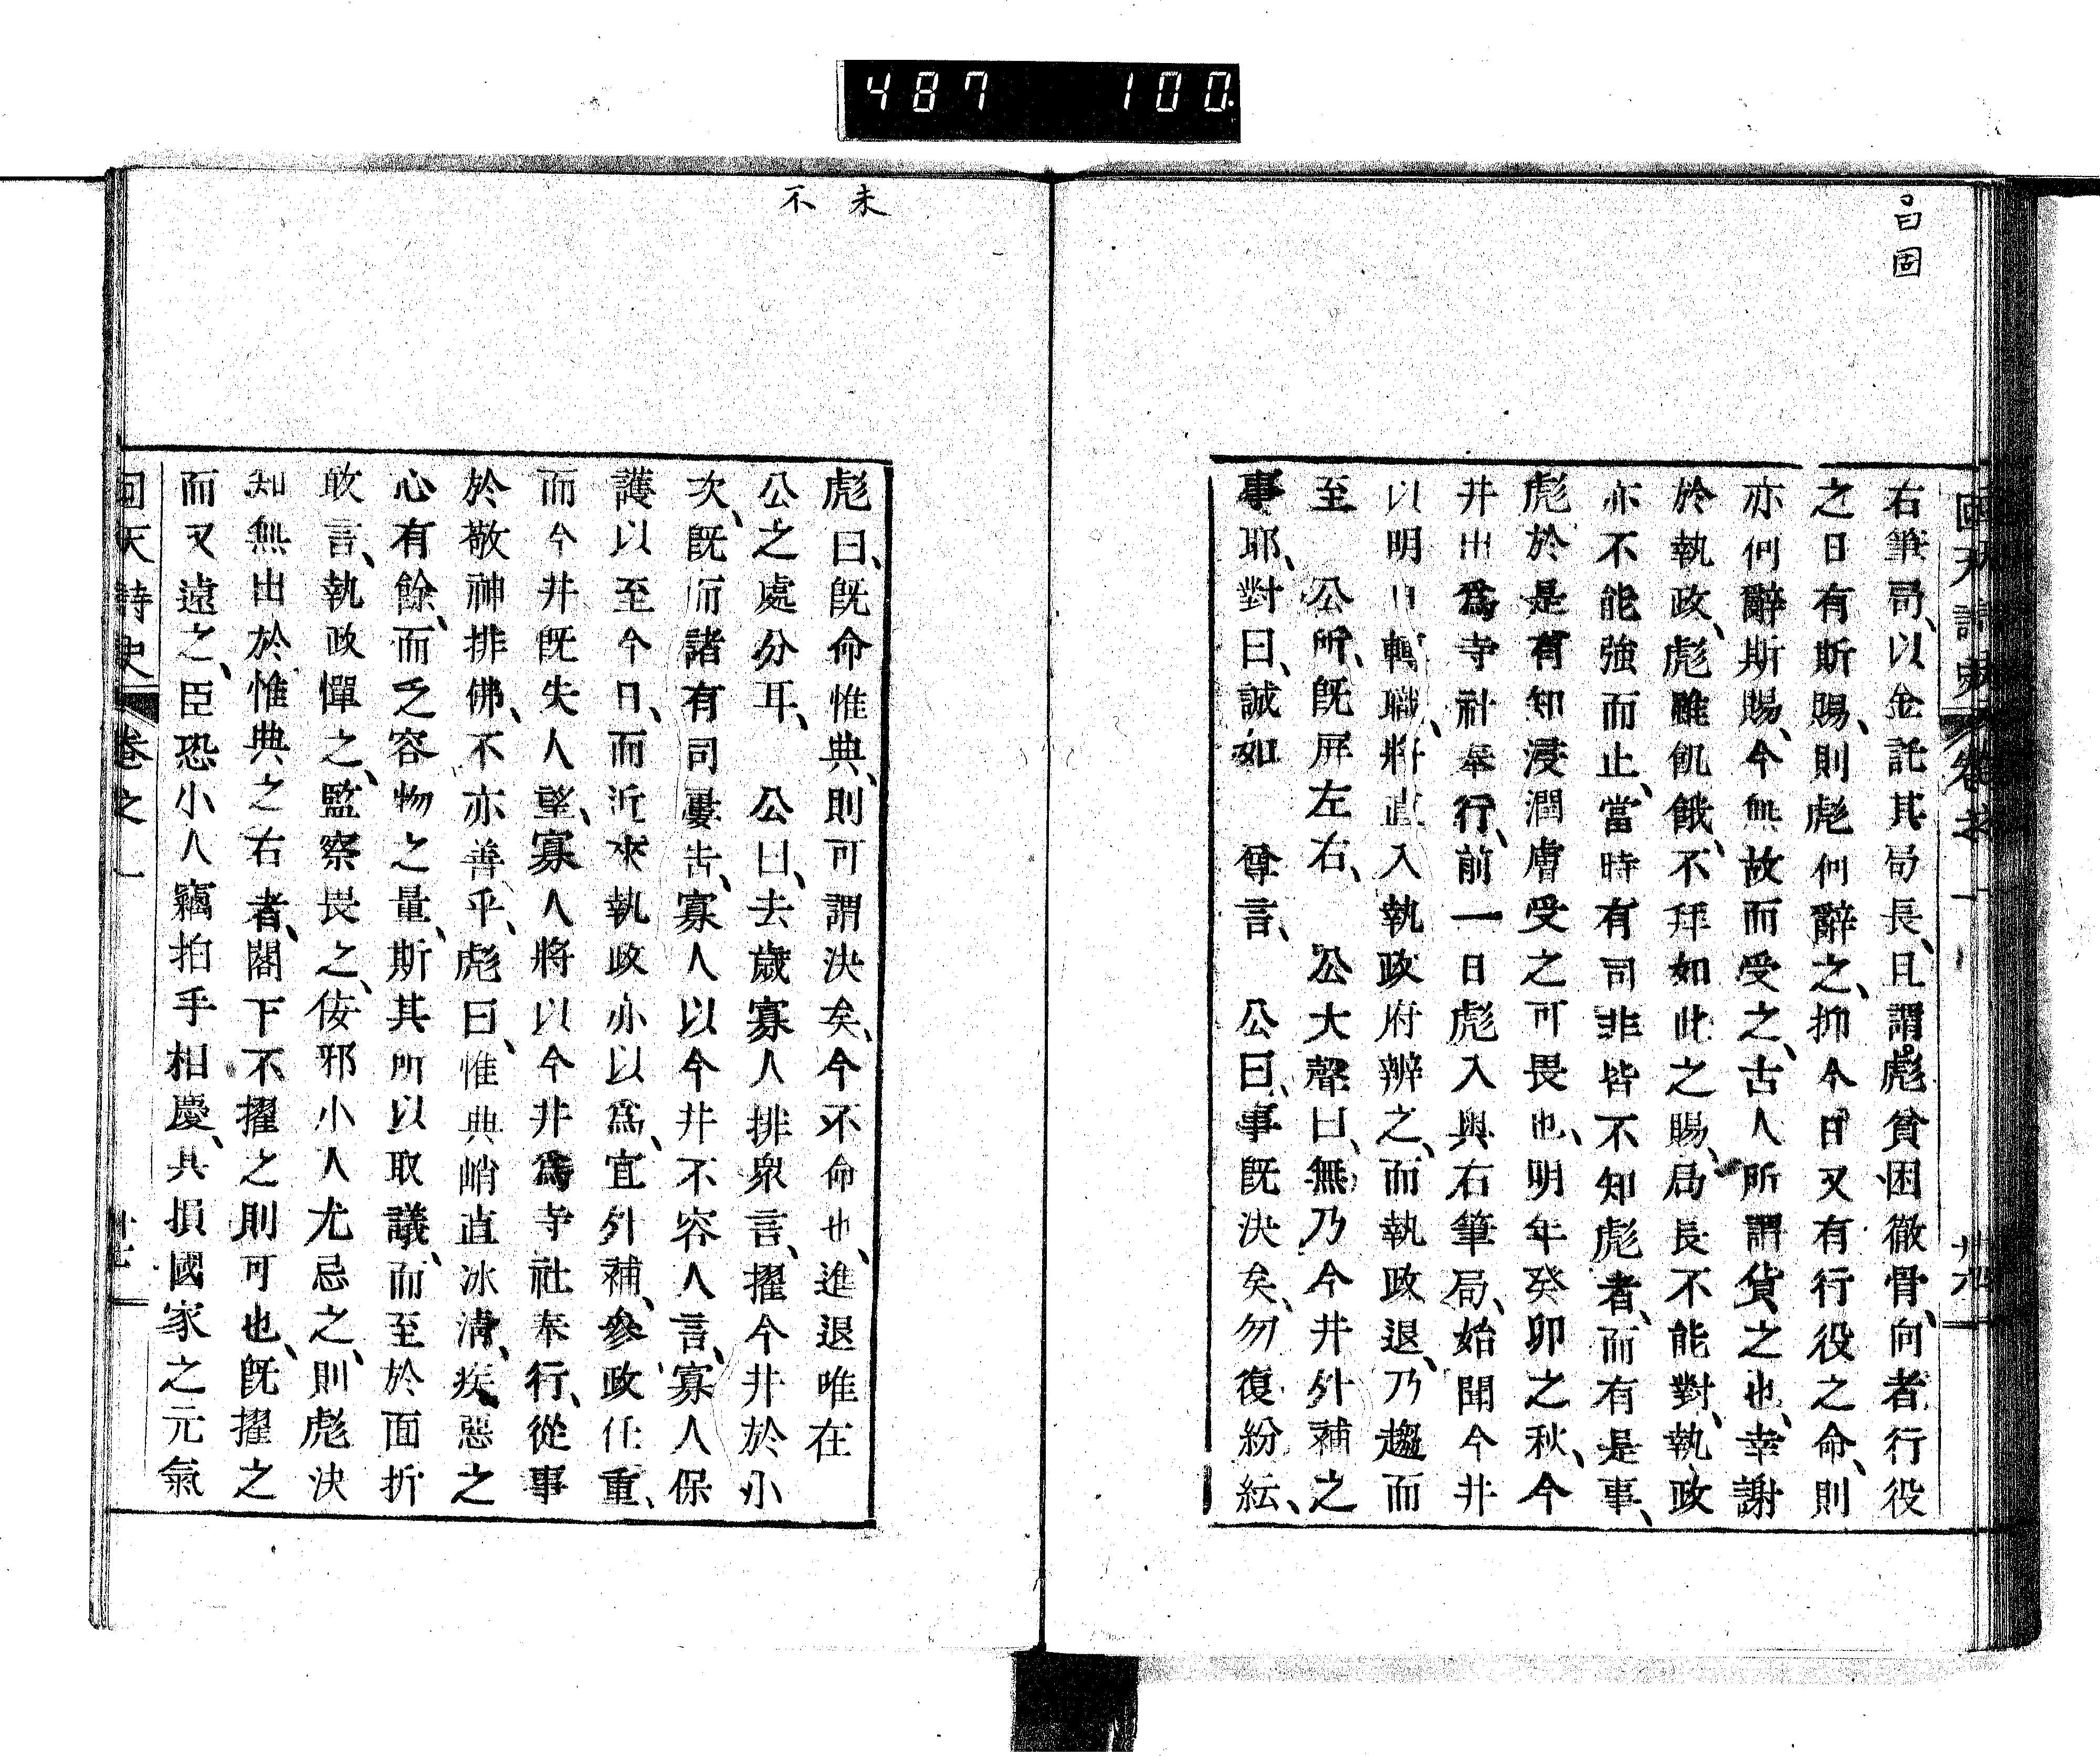 487 100
曰固
右筆局、以金託其局長、且謂彪貧困徹骨、向者行役
之日有斯賜、則彪何辭之、抑今日又有行役之命、則
亦何辭斯賜、今無故而受之、古人所謂貨之也、幸謝
於執政、彪雖飢餓、不拜如此之賜、局長不能對、執政
亦不能強而止、當時有司非皆不知彪者、而有是事、
彪於是有知浸潤膚受之可畏也、明年癸卯之秋、今
井出爲寺社奉行、前一日彪入與右筆局、始聞今井
以明日轉職、將直入執政府辨之、而執政退、乃趨而
至　公所、既屏左右、　公大聲曰、無乃今井外補之
事耶、對曰、誠如　尊言、　公曰、事既決矣、勿復紛紜、
未
不
彪曰、既命惟典、則可謂決矣、今不命也、進退唯在
公之處分耳、　公曰、去歲寡人排衆言、擢今井於小
次、既而諸有司屢告、寡人以今井不容人言、寡人保
護以至今日、而近來執政亦以爲、宜外補、參政任重、
而今井既失人望、寡人將以今井爲寺社奉行、從事
於敬神排佛、不亦善乎、彪曰、惟典峭直冰淸、疾惡之
心有餘、而乏容物之量、斯其所以取議、而至於面折
敢言、執政憚之、監察畏之、侫邪小人尤忌之、則彪決
知無出於惟典之右者、閣下不擢之則可也、既擢之
而又遠之、臣恐小人竊拍手相慶、其損國家之元氣
回天詩史　卷之一